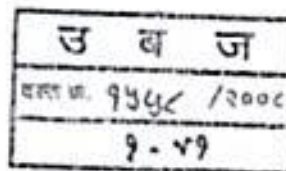 उ ब ज
दस्त क्र. १५५८ /२००८
१ - ४१